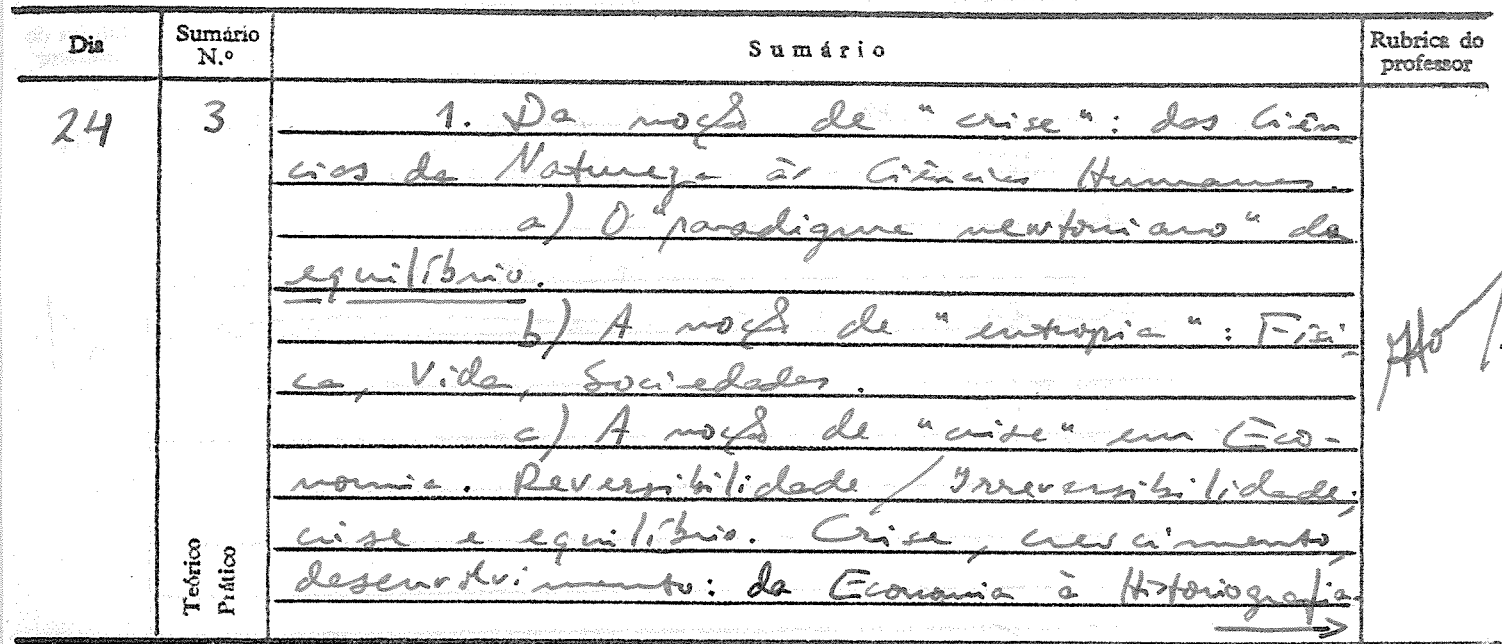 Dia Sumário N.º Sumário Rubrica do professor
24 3 1. Da noção de "crise": das Ciên-
cias da Natureza às Ciências Humanas.
a) O "paradigma newtoniano" do
equilíbrio.
b) A noção de "entropia": Físi-
ca, Vida, Sociedades.
c) A noção de "crise" em Eco-
nomia. Reversibilidade / Irreversibilidade;
crise e equilíbrio. Crise, crescimento,
desenvolvimento: da Economia à Historiografia
Teórico
Prático